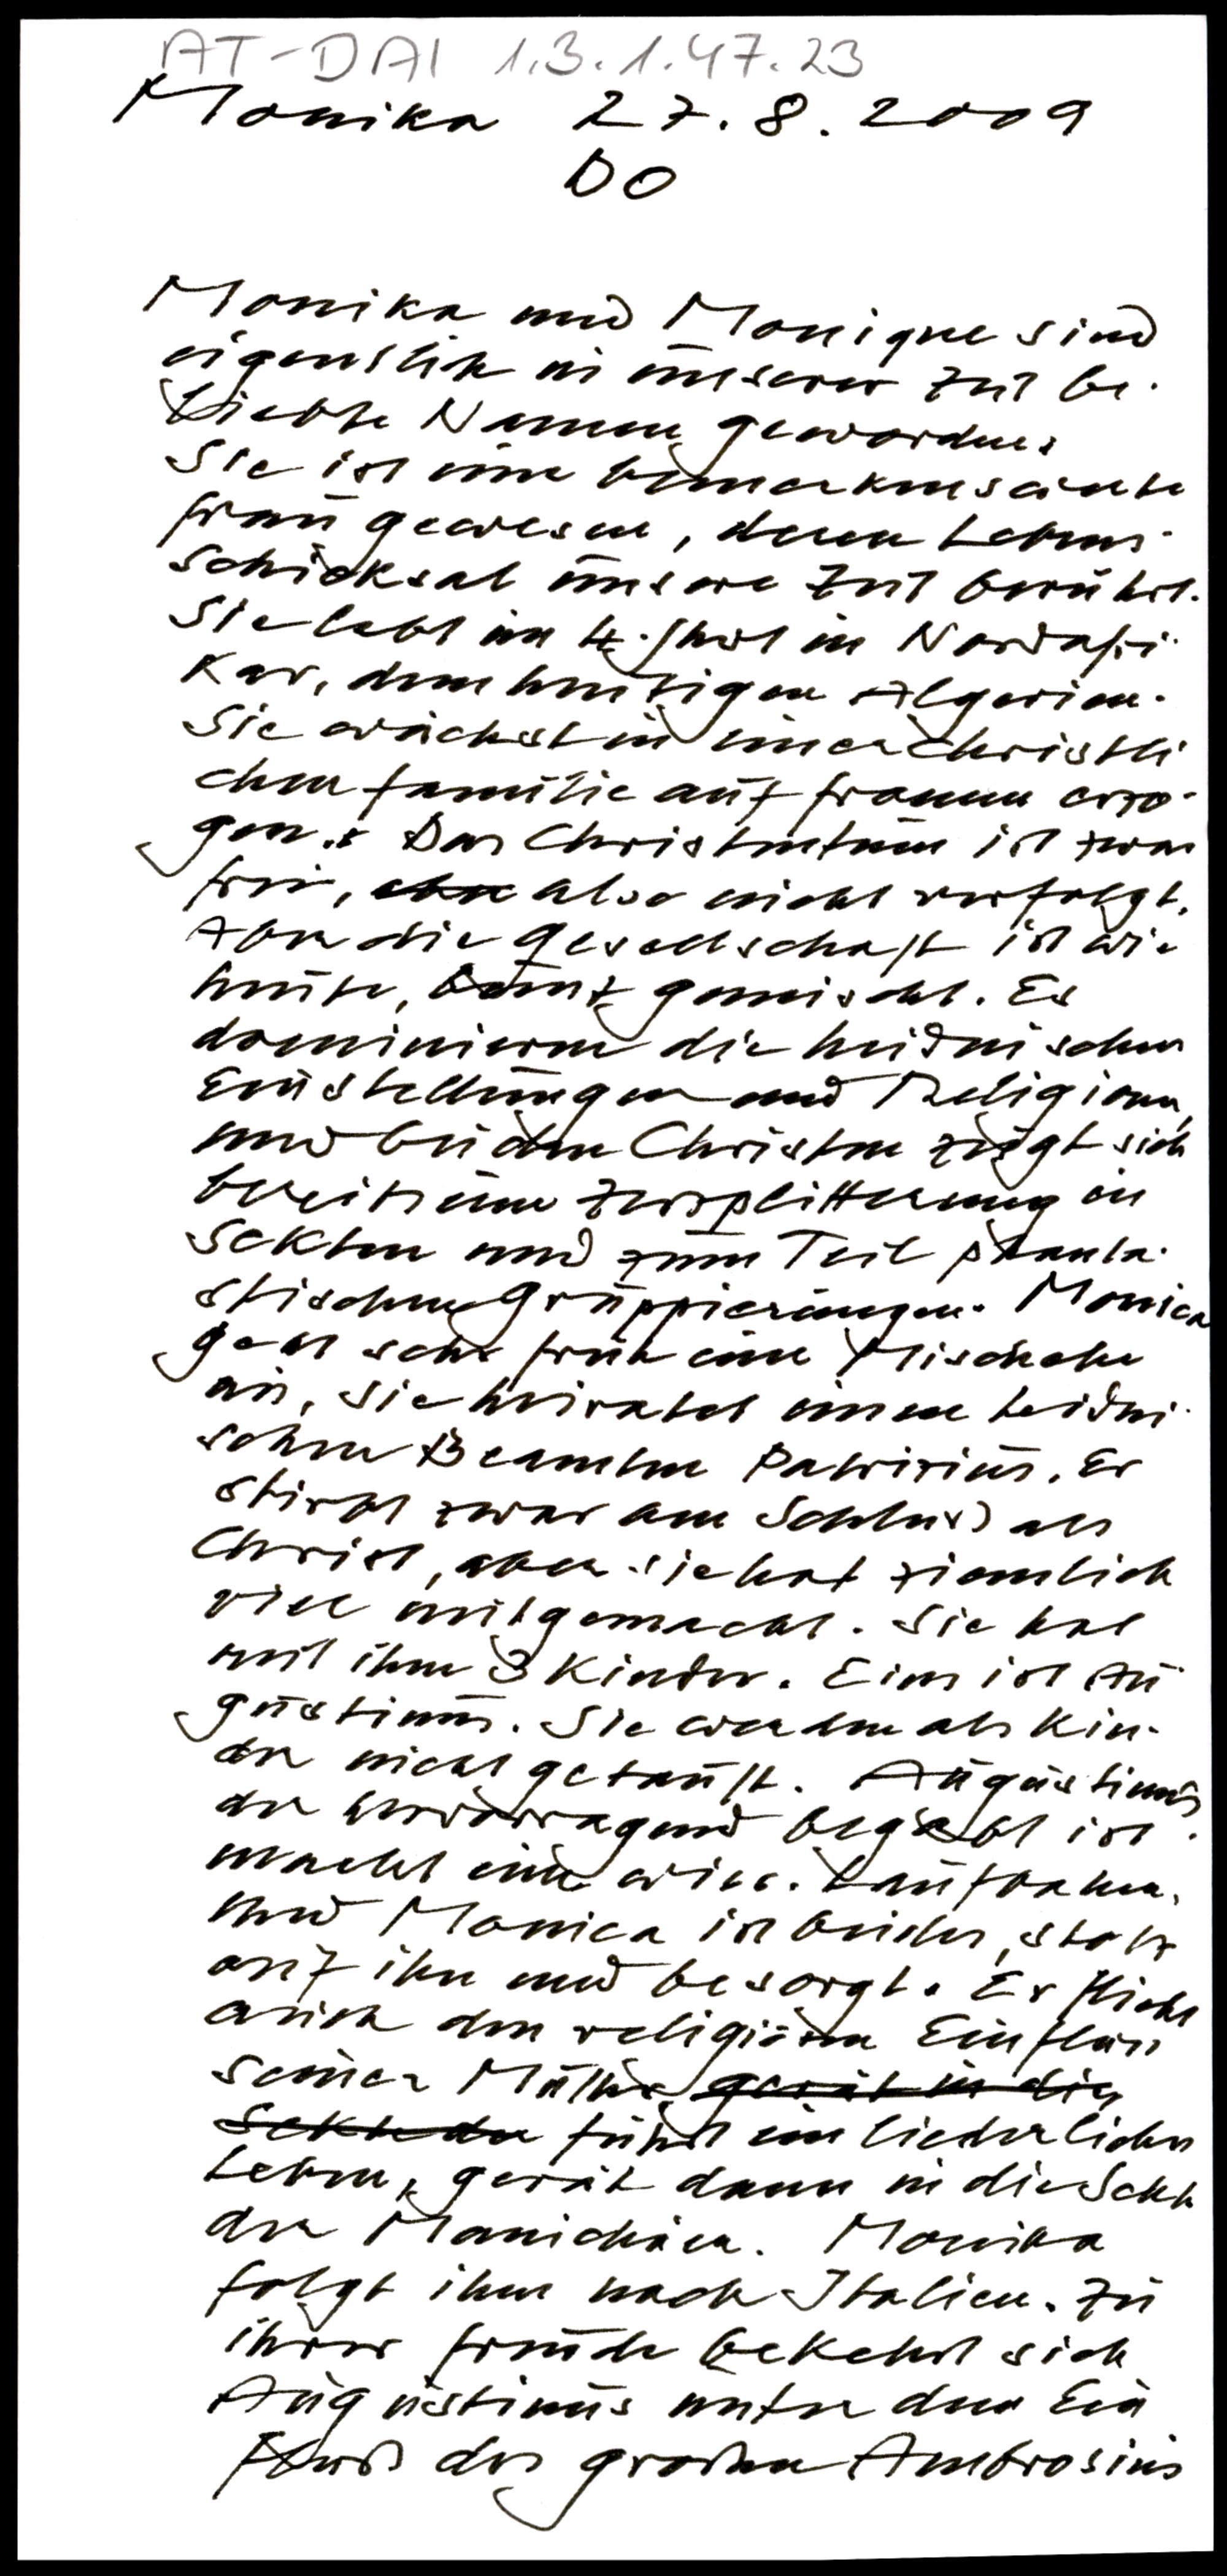 AT-DAI 1.3.1.47.23
Monika 27.8.2009
DO
Monika und Monique sind
eigentlich in unserer Zeit be-
liebte Namen geworden.
Sie ist eine bemerkenswerte
Frau gewesen, deren Lebens-
schicksal unsere Zeit berührt.
Sie lebt im 4. Jhdt in Nordafri-
kar, dem heutigen Algerien.
Sie wächst in einer christli
chen Familie auf fromm erzo-
gen. Das Christentum ist zwar
frei, also nicht verfolgt.
Aber die Gesellschaft ist wie
heute, bunt gemischt. Es
dominieren die heidnischen
Einstellungen und Religionen,
und bei den Christen zeigt sich
bereits eine Zersplitterung in
Sekten und zum Teil phanta-
stischen Gruppierungen. Monica
geht sehr früh eine Mischehe
ein, sie heiratet einen heidni-
schen Beamten Patrizius. Er
stirbt zwar am Schluss als
Christ, aber sie hat ziemlich
viel mitgemacht. Sie hat
mit ihm 3 Kinder. Eines ist Au
gustinus. Sie werden als Kin-
der nicht getauft. Augustinus,
der hervorragend begabt ist
macht eine wiss. Laufbahn.
Und Monica ist beides, stolz
auf ihn und besorgt. Er flieht
auch den religiösen Einfluss
seiner Mutter, gerät in die
Sekte der führt ein liederliches
Leben, gerät dann in die Sekte
der Manichäer. Monika
folgt ihm nach Italien. Zu
ihrer Freude bekehrt sich
Augustinus unter dem Ein
fluß des großen Ambrosius